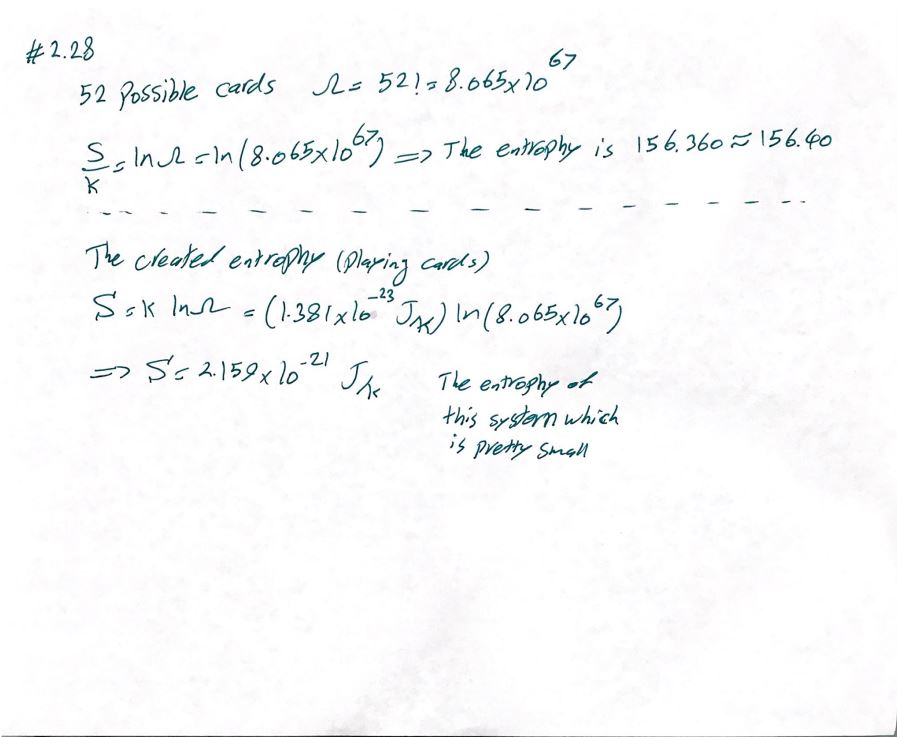 #2.28
52 Possible cards Ω = 52! = 8.065x10^67
S/k = ln Ω = ln(8.065x10^67) => The entrophy is 156.360 ≈ 156.40
The created entrophy (Playing cards)
S = k ln Ω = (1.381x10^-23 J/k) ln(8.065x10^67)
=> S = 2.159x10^-21 J/k
The entrophy of
this system which
is pretty small